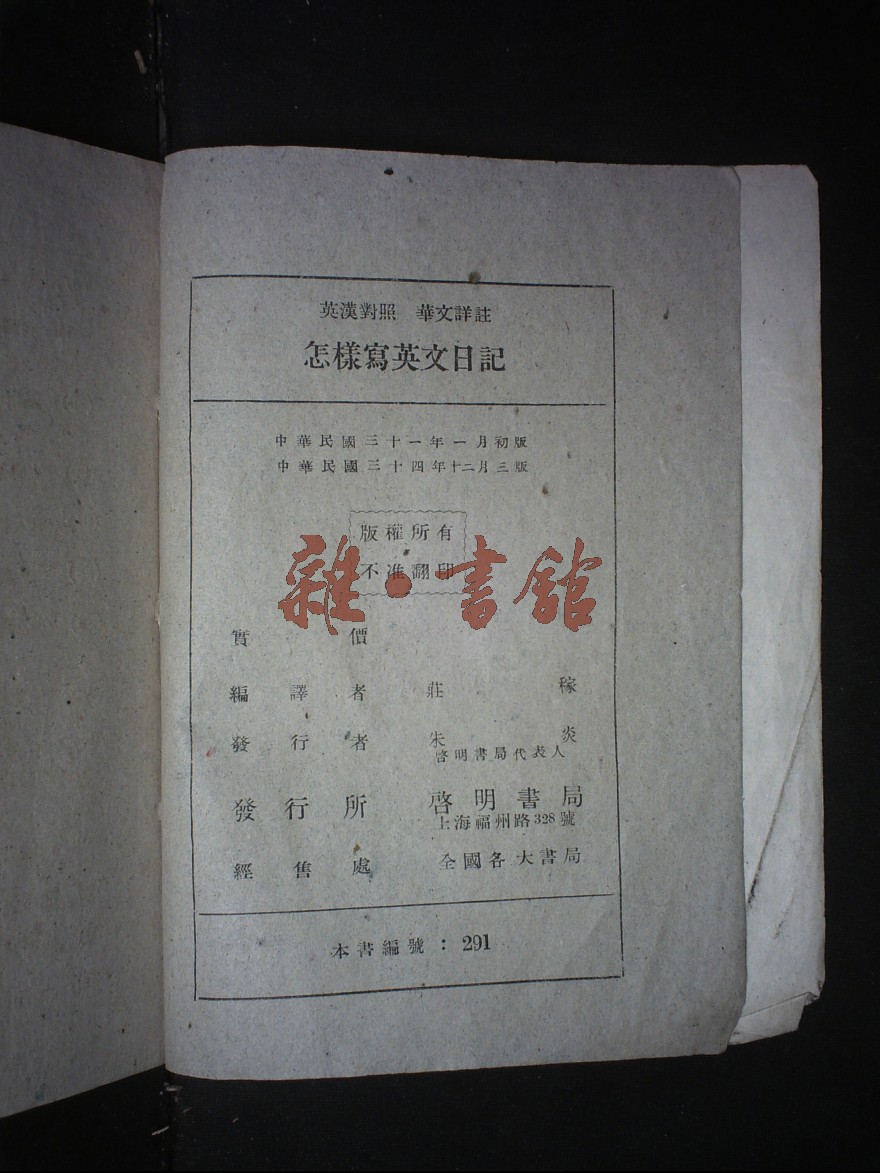 英漢對照 華文詳註
怎樣寫英文日記
中華民國三十一年一月初版
中華民國三十四年十二月三版
版權所有
不准翻印
雜·書館
實價
編譯者 莊稼
發行者 朱炎
啓明書局代表人
發行所 啓明書局
上海福州路328號
經售處 全國各大書局
本書編號：291